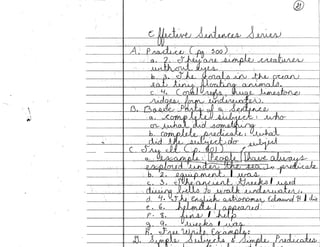 21
Effective Sentences Series
A. Practice (pg. 300)
a. 2. They are simple creatures
without eyes.
b. 3. The corals in the ocean
eat tiny floating animals.
c. 4. Coral forms huge limestone
ridges form underwater.
B. Basic Parts of a Sentence
a. complete subject: who
or what did something
b. complete predicate: what
did the subject do
subject
C. Try it (pg. 301)
a. example: People | have always
explored under the sea. predicate
b. 2. equipment | was
c. 3. The ancient Greeks | used
diving bells to walk underwater.
d. 4. The English astronomer Edmund H | did
e. 6. helmets | appeared
f. 8. fins | help
g. 9. weeks | was
h. Free Write Example:
D. Simple Subjects & Simple Predicates